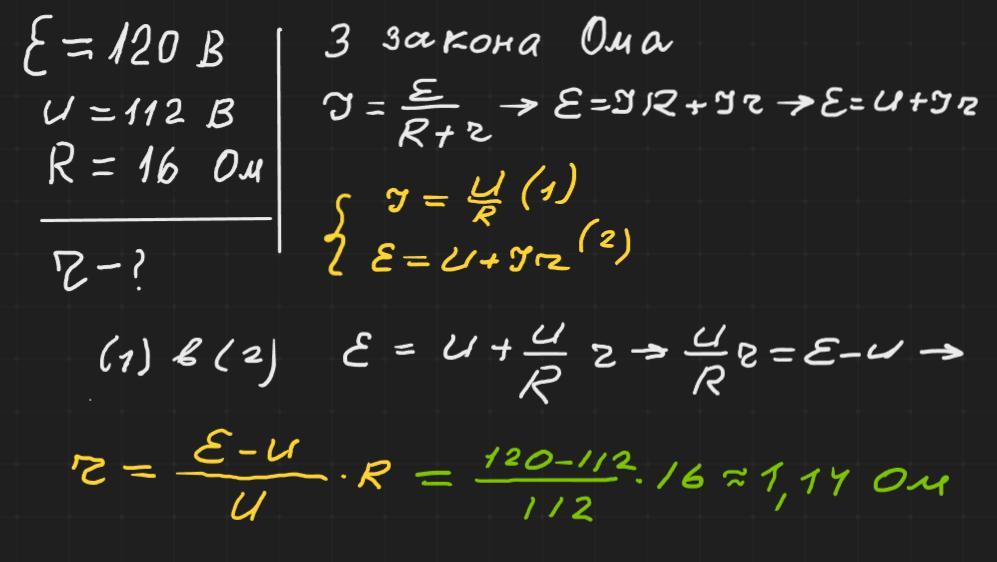 ℰ = 120 В
U = 112 В
R = 16 Ом
r - ?
З закона Ома
I = ℰ/(R + r) → ℰ = IR + Ir → ℰ = U + Ir
I = U/R (1)
ℰ = U + Ir (2)
(1) в (2) ℰ = U + U/R r → U/R r = ℰ - U →
r = (ℰ - U)/U · R = (120 - 112)/112 · 16 ≈ 1,14 Ом